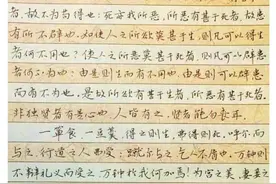 者,故不为苟得也;死亦我所恶,所恶有甚于死者,故患
有所不辟也。如使人之所欲莫甚于生,则凡可以得生
者何不用也?使人之所恶莫甚于死者,则凡可以辟患
者何不为也?由是则生而有不用也,由是则可以辟患
而有不为也,是故所欲有甚于生者,所恶有甚于死者。
非独贤者有是心也,人皆有之,贤者能勿丧耳。
一箪食,一豆羹,得之则生,弗得则死,呼尔而
与之,行道之人弗受;蹴尔与之,乞人不屑,万钟则
不辩礼义而受之,万钟于我何加焉!为宫室之美,妻妾